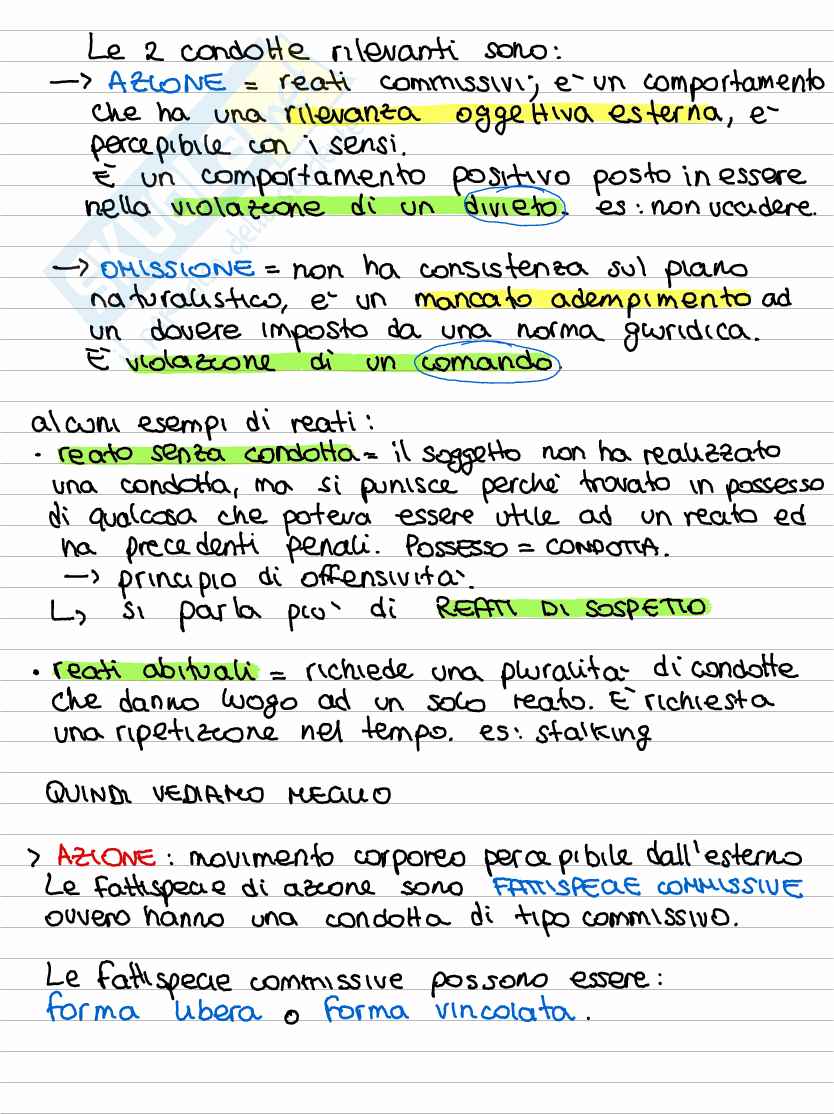 Le 2 condotte rilevanti sono:
—> AZIONE = reati commissivi; e- un comportamento
che ha una rilevanza oggettiva esterna, e-
percepibile con i sensi.
È un comportamento positivo posto in essere
nella violazione di un divieto. es: non uccidere.
—> OMISSIONE = non ha consistenza sul piano
naturalistico, e- un mancato adempimento ad
un dovere imposto da una norma giuridica.
È violazione di un comando.
alcuni esempi di reati:
· reato senza condotta = il soggetto non ha realizzato
una condotta, ma si punisce perché trovato in possesso
di qualcosa che poteva essere utile ad un reato ed
ha precedenti penali. POSSESSO = CONDOTTA.
—> principio di offensività.
↳ si parla più di REATI DI SOSPETTO
· reati abituali = richiede una pluralità di condotte
che danno luogo ad un solo reato. È richiesta
una ripetizione nel tempo. es: stalking
QUINDI VEDIAMO MEGLIO
> AZIONE: movimento corporeo percepibile dall'esterno
Le fattispecie di azione sono FATTISPECIE COMMISSIVE
ovvero hanno una condotta di tipo commissivo.
Le fattispecie commissive possono essere:
forma libera o forma vincolata.